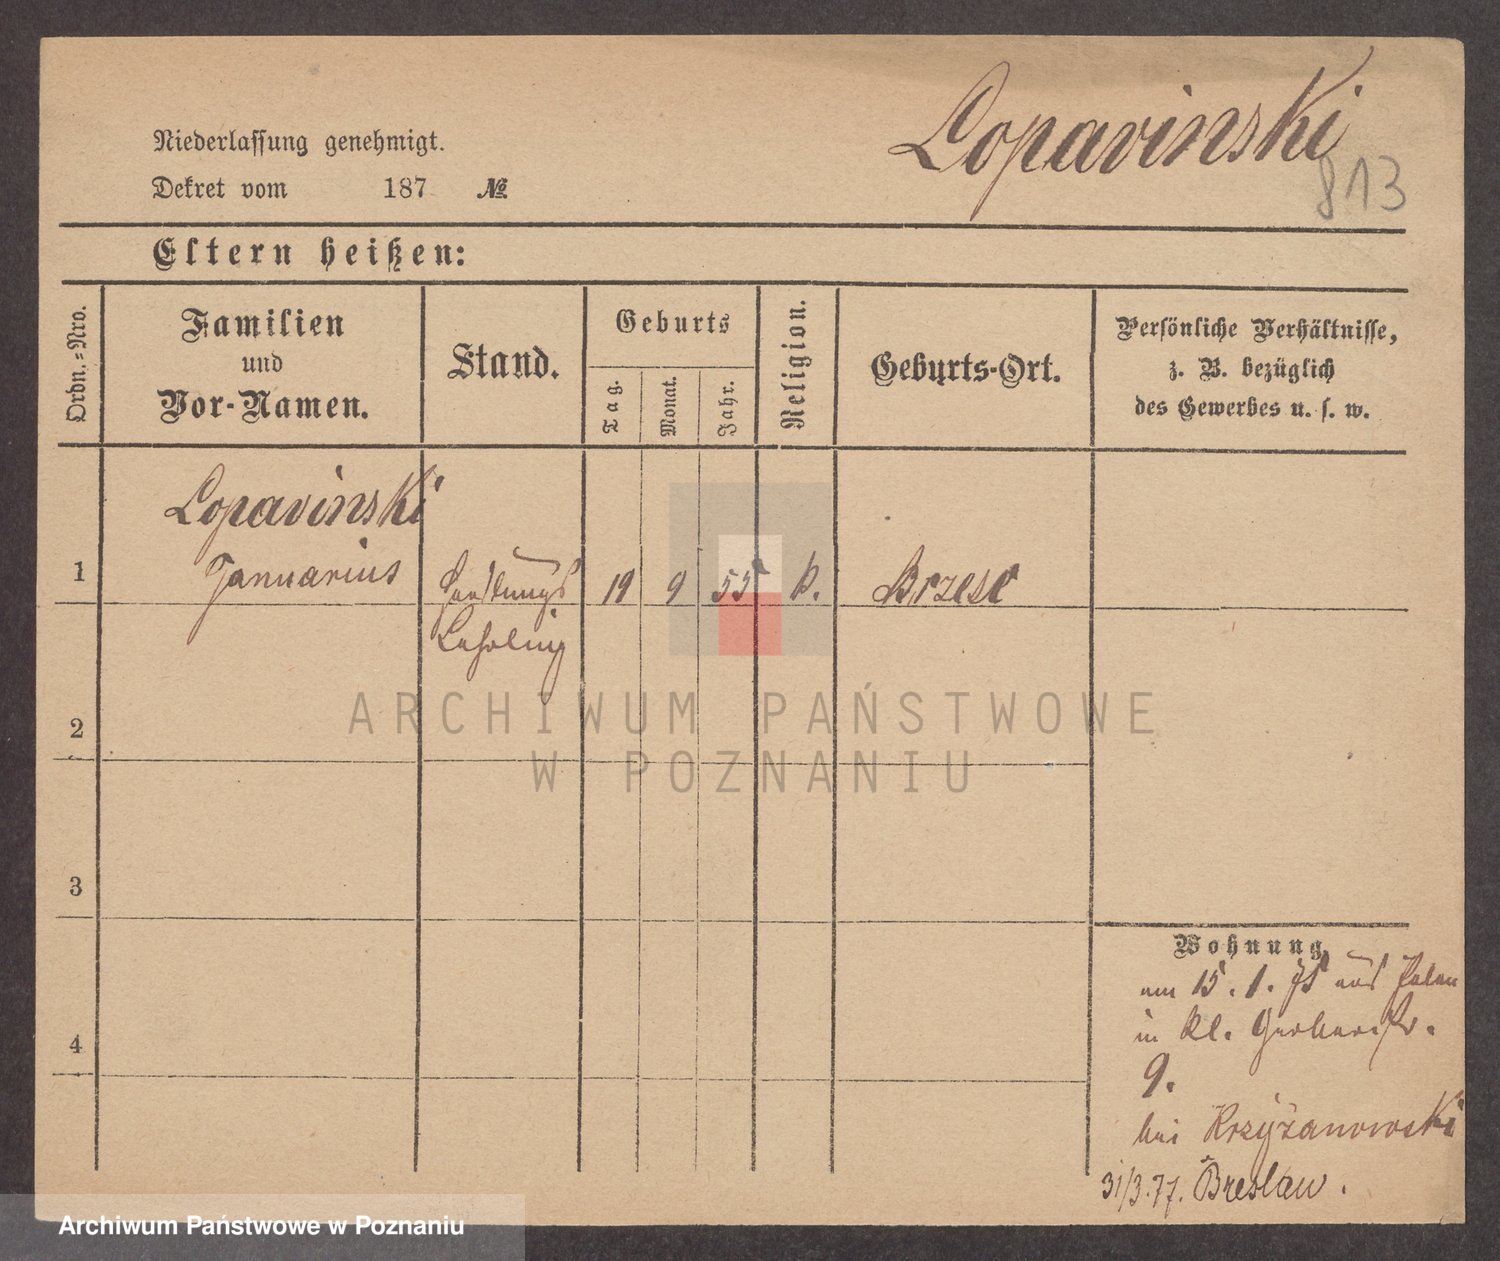 Lopavinski
813
Niederlassung genehmigt.
Dekret vom 187 №
Eltern heißen:
Ordn.-Nro.
Familien
und
Vor-Namen.
Stand.
Geburts
Tag.
Monat.
Jahr.
Religion.
Geburts-Ort.
Persönliche Verhältnisse,
z. B. bezüglich
des Gewerbes u. s. w.
Lopavinski
1 Januarius Handlungs 19 9 55 k. Brzesc
Lehrling
2
3
4
Wohnung.
am 15. 1. 75 aus Polen
in Kl. Gerberstr.
9.
bei Krzyżanowski
31/3.77. Breslau.
ARCHIWUM PAŃSTWOWE
W POZNANIU
Archiwum Państwowe w Poznaniu